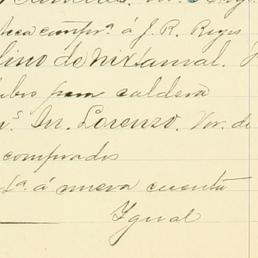 compr.ª á J. R. Reyes
lino de nixtamal.
para caldera
Sn. Lorenzo. Vor. de
comprados
á nueva cuenta
Ygual